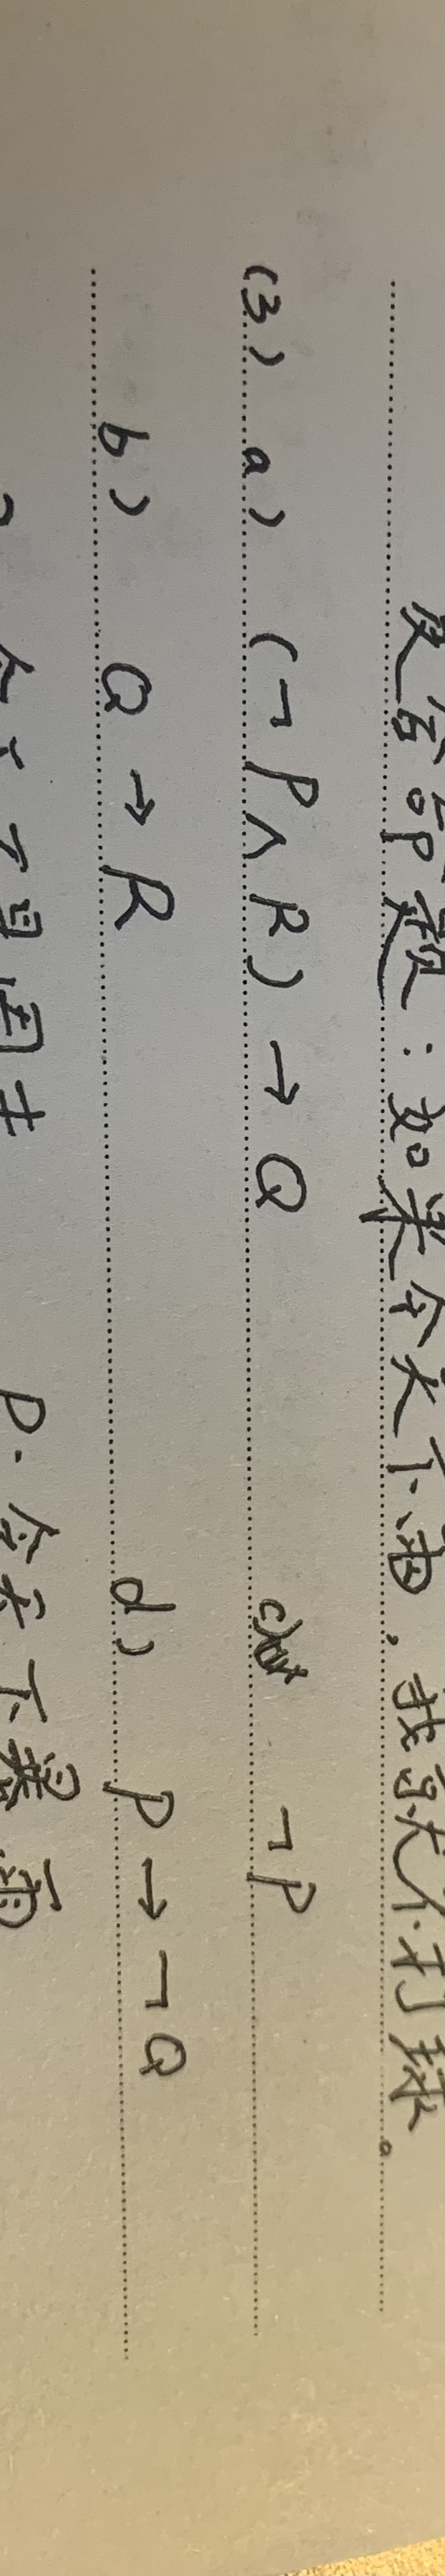 复合命题：如果今天下雨，我就不打球。
(3) a) (¬P∧R)→Q c) ¬P
b) Q→R d) P→¬Q
P. 今天下暴雨